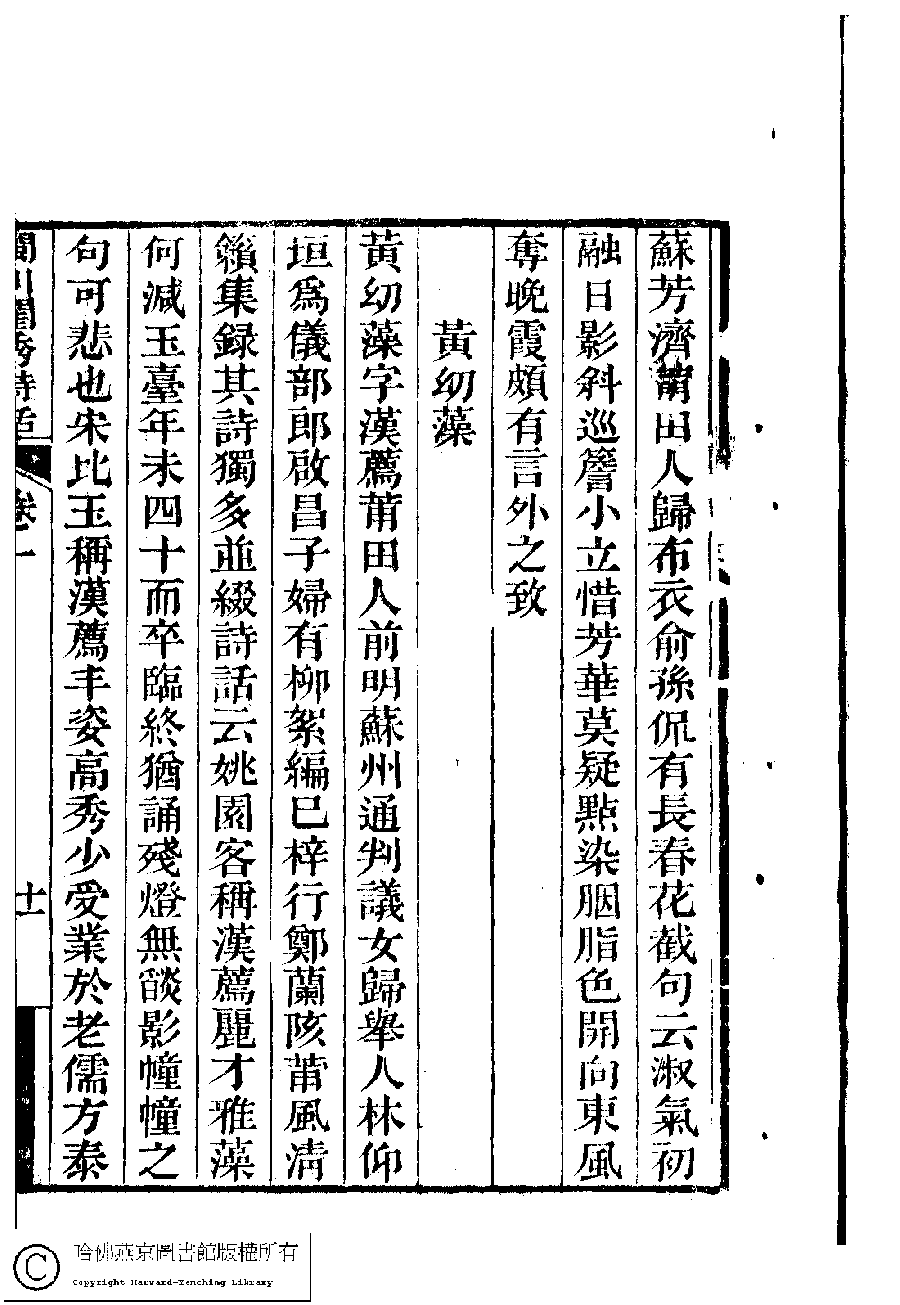 蘇芳濟莆田人歸布衣俞孫侃有長春花截句云淑氣初
融日影斜巡簷小立惜芳華莫疑點染胭脂色開向東風
奪晚霞頗有言外之致
黃幼藻
黃幼藻字漢薦莆田人前明蘇州通判議女歸舉人林仰
垣爲儀部郎啟昌子婦有柳絮編已梓行鄭蘭陔莆風清
籟集録其詩獨多並綴詩話云姚園客稱漢薦麗才雅藻
何減玉臺年未四十而卒臨終猶誦殘燈無燄影幢幢之
句可悲也宋比玉稱漢薦丰姿高秀少受業於老儒方泰
閩川閨秀詩話 卷一 十一
哈佛燕京圖書館版權所有
Copyright Harvard-Yenching Library